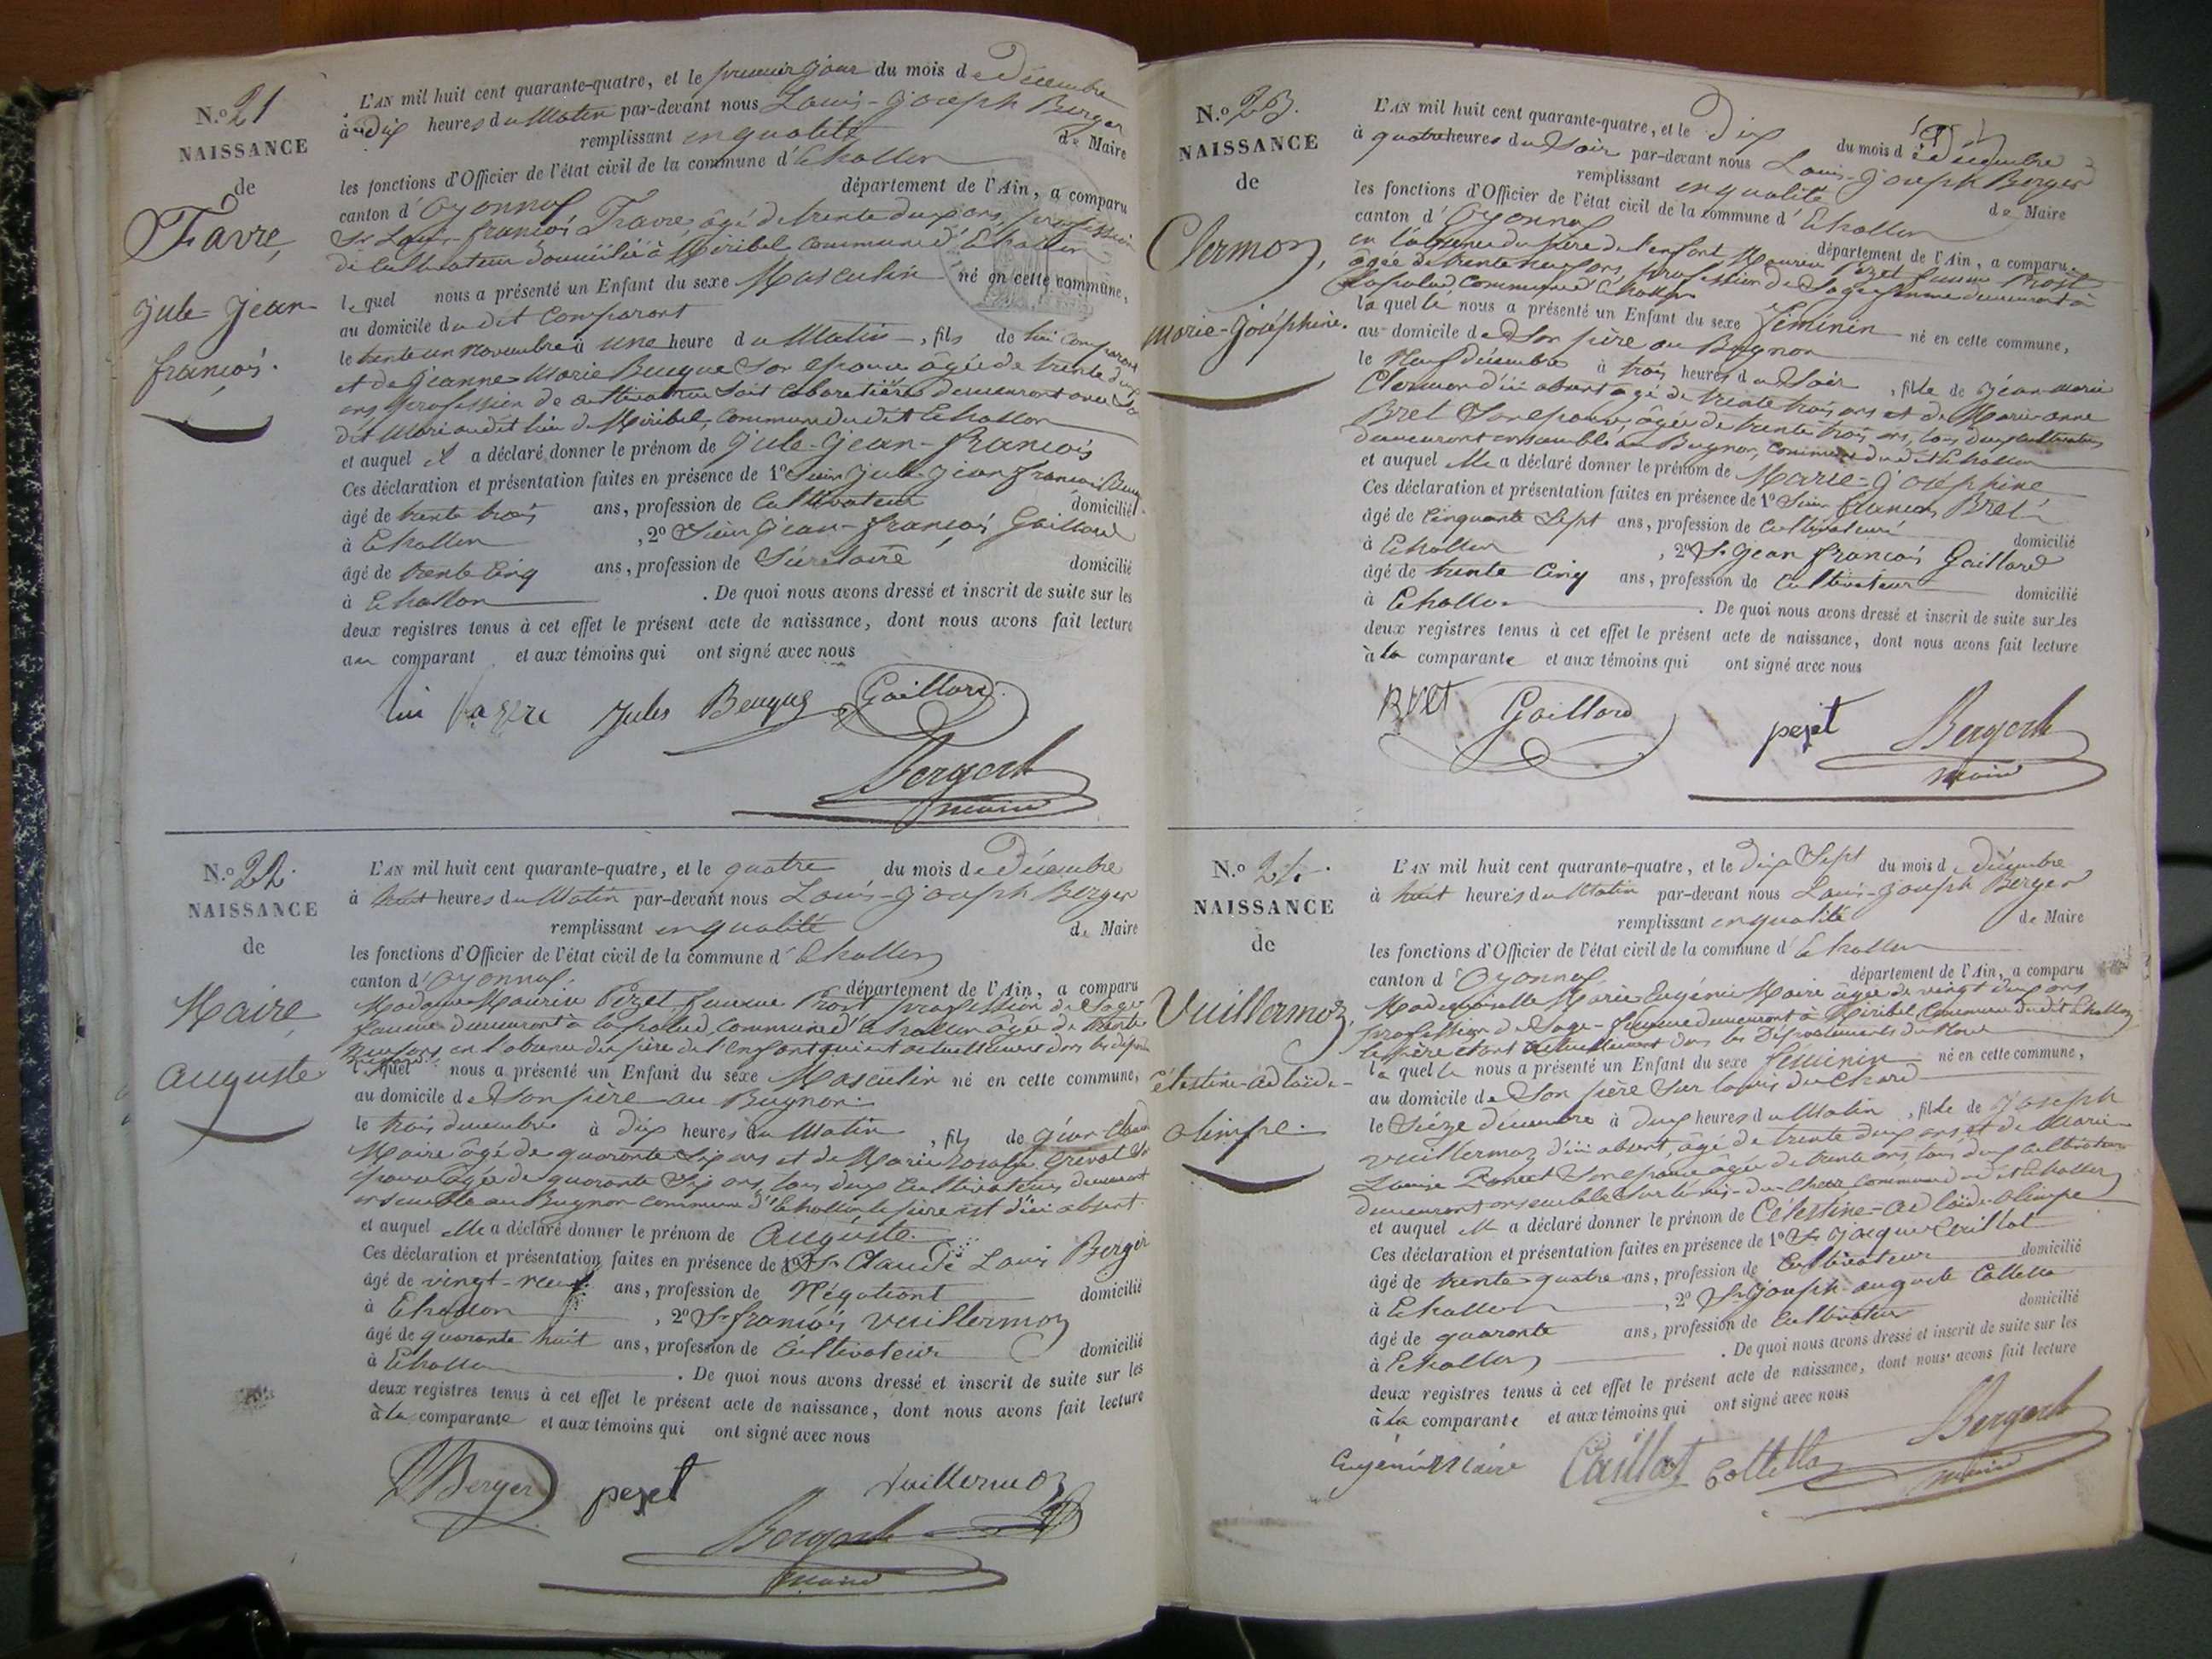 N.º 21
NAISSANCE
de
Favre,
Jule-Jean-
françois.
L'AN mil huit cent quarante-quatre, et le premier jour du mois de Décembre
à dix heures du Matin par-devant nous Louis-Joseph Berger
remplissant en qualité de Maire
les fonctions d'Officier de l'état civil de la commune d'Echallon
canton d'Oyonnax département de l'Ain, a comparu
Sr Louis-françois Favre, âgé de trente deux ans, profession
de Cultivateur domicilié à Miribel commune d'Echallon
lequel nous a présenté un Enfant du sexe Masculin né en cette commune,
au domicile dudit comparant
le trente un novembre à une heure du Matin, fils de lui comparant
et de Jeanne Marie Beugue Son épouse âgée de trente deux
ans, profession de cultivatrice Soit Cabaretière demeurant avec Son
dit Mari audit lieu de Miribel, commune dudit Echallon
et auquel il a déclaré donner le prénom de Jule-Jean-françois
Ces déclaration et présentation faites en présence de 1º Sieur Jule-Jean françois Beugue
âgé de trente trois ans, profession de Cultivateur domicilié
à Echallon, 2º Sieur Jean-françois Gaillard
âgé de trente cinq ans, profession de Sécrétaire domicilié
à Echallon. De quoi nous avons dressé et inscrit de suite sur les
deux registres tenus à cet effet le présent acte de naissance, dont nous avons fait lecture
au comparant et aux témoins qui ont signé avec nous
Jules Beugue Gaillard
Berger
maire
N.º 22.
NAISSANCE
de
Maire,
Auguste
L'AN mil huit cent quarante-quatre, et le quatre du mois de Décembre
à huit heures du Matin par-devant nous Louis-Joseph Berger
remplissant en qualité de Maire
les fonctions d'Officier de l'état civil de la commune d'Echallon
canton d'Oyonnax. département de l'Ain, a comparu
Madame Pezet femme Prost profession de Sage
femme demeurant à lapalud, commune d'Echallon âgée de trente
neuf ans en l'absence du père de l'enfant qui est actuellement dans les
laquelle nous a présenté un Enfant du sexe Masculin né en cette commune,
au domicile de Son père au Bugnon.
le trois décembre à dix heures du Matin, fils de Jean-Claude
Maire âgé de quarante Six ans et de Marie Rosalie Grévat Son
épouse âgée de quarante Six ans, tous deux Cultivateurs demeurant
ensemble au Bugnon commune d'Echallon le père est d'ici absent.
et auquel elle a déclaré donner le prénom de Auguste.
Ces déclaration et présentation faites en présence de 1º Sr Claude Louis Berger
âgé de vingt-neuf ans, profession de Négociant domicilié
à Echallon, 2º Sr françois Vuillermoz
âgé de quarante huit ans, profession de Cultivateur domicilié
à Echallon. De quoi nous avons dressé et inscrit de suite sur les
deux registres tenus à cet effet le présent acte de naissance, dont nous avons fait lecture
à la comparante et aux témoins qui ont signé avec nous
Berger pezet Vuillermoz
Berger
maire
N.º 23.
NAISSANCE
de
Clermon,
Marie-Joséphine.
L'AN mil huit cent quarante-quatre, et le Dix du mois de Décembre
à quatre heures du Soir par-devant nous Louis-Joseph Berger
remplissant en qualité de Maire
les fonctions d'Officier de l'état civil de la commune d'Echallon
canton d'Oyonnax département de l'Ain, a comparu
en l'absence du père de l'enfant Pezet femme Prost
âgée de trente neuf ans, profession de Sage femme demeurant à
lapalud commune d'Echallon
laquelle nous a présenté un Enfant du sexe féminin né en cette commune,
au domicile de Son père au Bugnon
le Neuf décembre à trois heures du Soir, fille de Jean-Marie
Clermon d'ici absent âgé de trente trois ans et de Marie-Anne
Bret Son épouse, âgée de trente trois ans, tous deux cultivateurs
demeurant ensemble au Bugnon, commune dudit Echallon
et auquel elle a déclaré donner le prénom de Marie-Joséphine
Ces déclaration et présentation faites en présence de 1º Sieur françois Bret
âgé de Cinquante Sept ans, profession de Cultivateur domicilié
à Echallon, 2º Sr Jean françois Gaillard
âgé de trente Cinq ans, profession de Cultivateur domicilié
à Echallon. De quoi nous avons dressé et inscrit de suite sur les
deux registres tenus à cet effet le présent acte de naissance, dont nous avons fait lecture
à la comparante et aux témoins qui ont signé avec nous
Bret Gaillard pezet Berger
maire
N.º 24.
NAISSANCE
de
Vuillermoz,
Célestine-Adlaïde-
Olimpe.
L'AN mil huit cent quarante-quatre, et le dix Sept du mois de décembre
à huit heures du Matin par-devant nous Louis-Joseph Berger
remplissant en qualité de Maire
les fonctions d'Officier de l'état civil de la commune d'Echallon
canton d'Oyonnax département de l'Ain, a comparu
Mademoiselle Marie Eugénie Maire âgée de vingt deux ans
profession de Sage-femme demeurant à Miribel, commune dudit Echallon
le père étant actuellement dans les Départements du
laquelle nous a présenté un Enfant du sexe féminin né en cette commune,
au domicile de Son père Sur
le Seize décembre à deux heures du Matin, fille de Joseph
Vuillermoz, d'ici absent, âgé de trente deux ans et de Marie-
Louise Son épouse âgée de trente ans, tous deux cultivateurs
demeurant ensemble commune dudit Echallon
et auquel elle a déclaré donner le prénom de Célestine-Adlaïde-Olimpe
Ces déclaration et présentation faites en présence de 1º Sr Jacques Caillat
âgé de trente quatre ans, profession de Cultivateur domicilié
à Echallon, 2º Sr Joseph-auguste Collella
âgé de quarante ans, profession de Cultivateur domicilié
à Echallon. De quoi nous avons dressé et inscrit de suite sur les
deux registres tenus à cet effet le présent acte de naissance, dont nous avons fait lecture
à la comparante et aux témoins qui ont signé avec nous
Eugénie Maire Caillat Collella Berger
maire